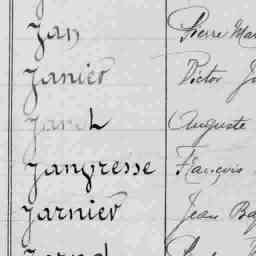 Jan Pierre Mar
Janier Victor J
Jarch Auguste
Jangresse François
Jarnier Jean Bap